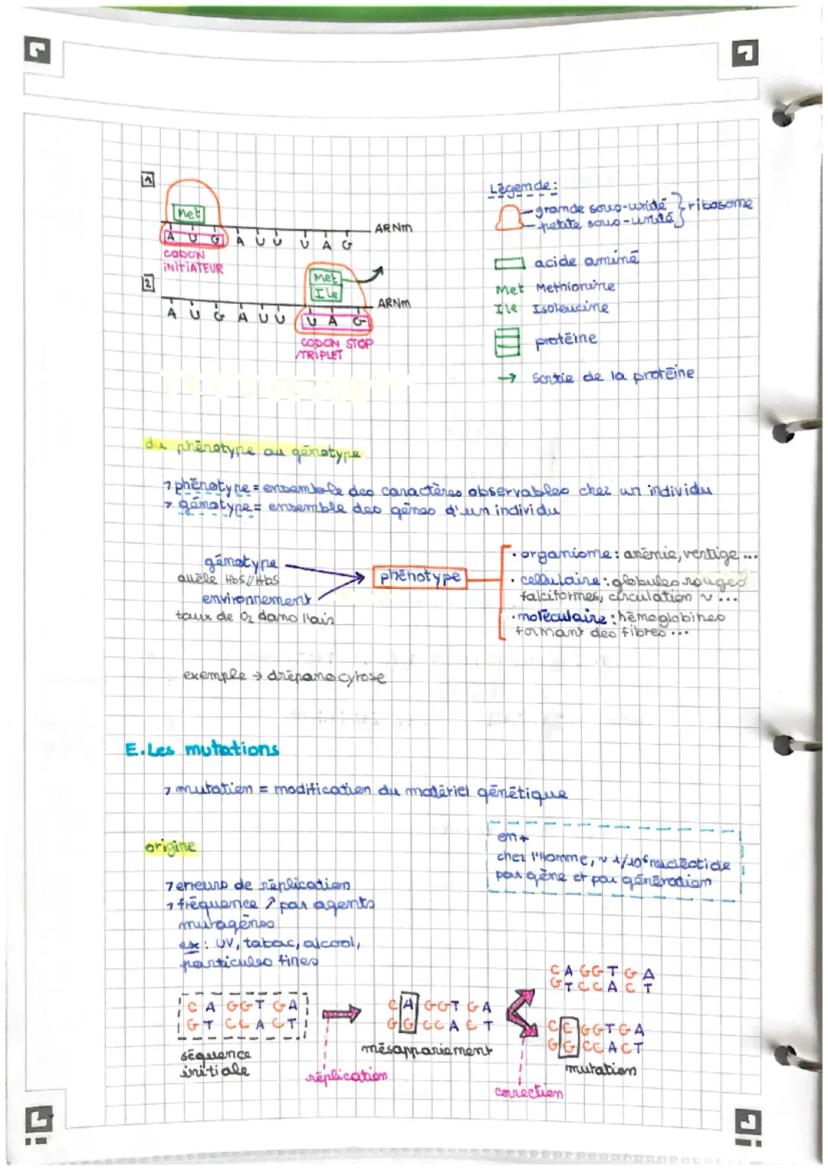 1
Met
A U G A U U U A G ARNm
CODON
INITIATEUR
2
Met
Ile
A U G A U U U A G ARNm
CODON STOP
/TRIPLET
Légende:
grande sous-unité
petite sous-unité
ribosome
acide aminé
Met Methionine
Ile Isoleucine
protéine
→ sortie de la protéine
du phénotype au génotype
> phénotype = ensemble des caractères observables chez un individu
> génotype = ensemble des gènes d'un individu
génotype
allèle HbS//HbS
environnement
taux de O2 dans l'air
phénotype
• organisme : anémie, vertige ...
• cellulaire : globules rouges
falciformes, circulation ~ ...
• moléculaire : hémoglobines
formant des fibres ...
exemple → drépanocytose
E. Les mutations
> mutation = modification du matériel génétique
en +
chez l'Homme, ~ 1/10⁶ nucléotide
par gène et par génération
origine
> erreurs de réplication
> fréquence ↗ par agents
mutagènes
ex : UV, tabac, alcool,
particules fines
C A G G T G A
G T C C A C T
séquence
initiale
réplication
C A G G T G A
G G C C A C T
mésappariement
correction
C A G G T G A
G T C C A C T
C C G G T G A
G G C C A C T
mutation